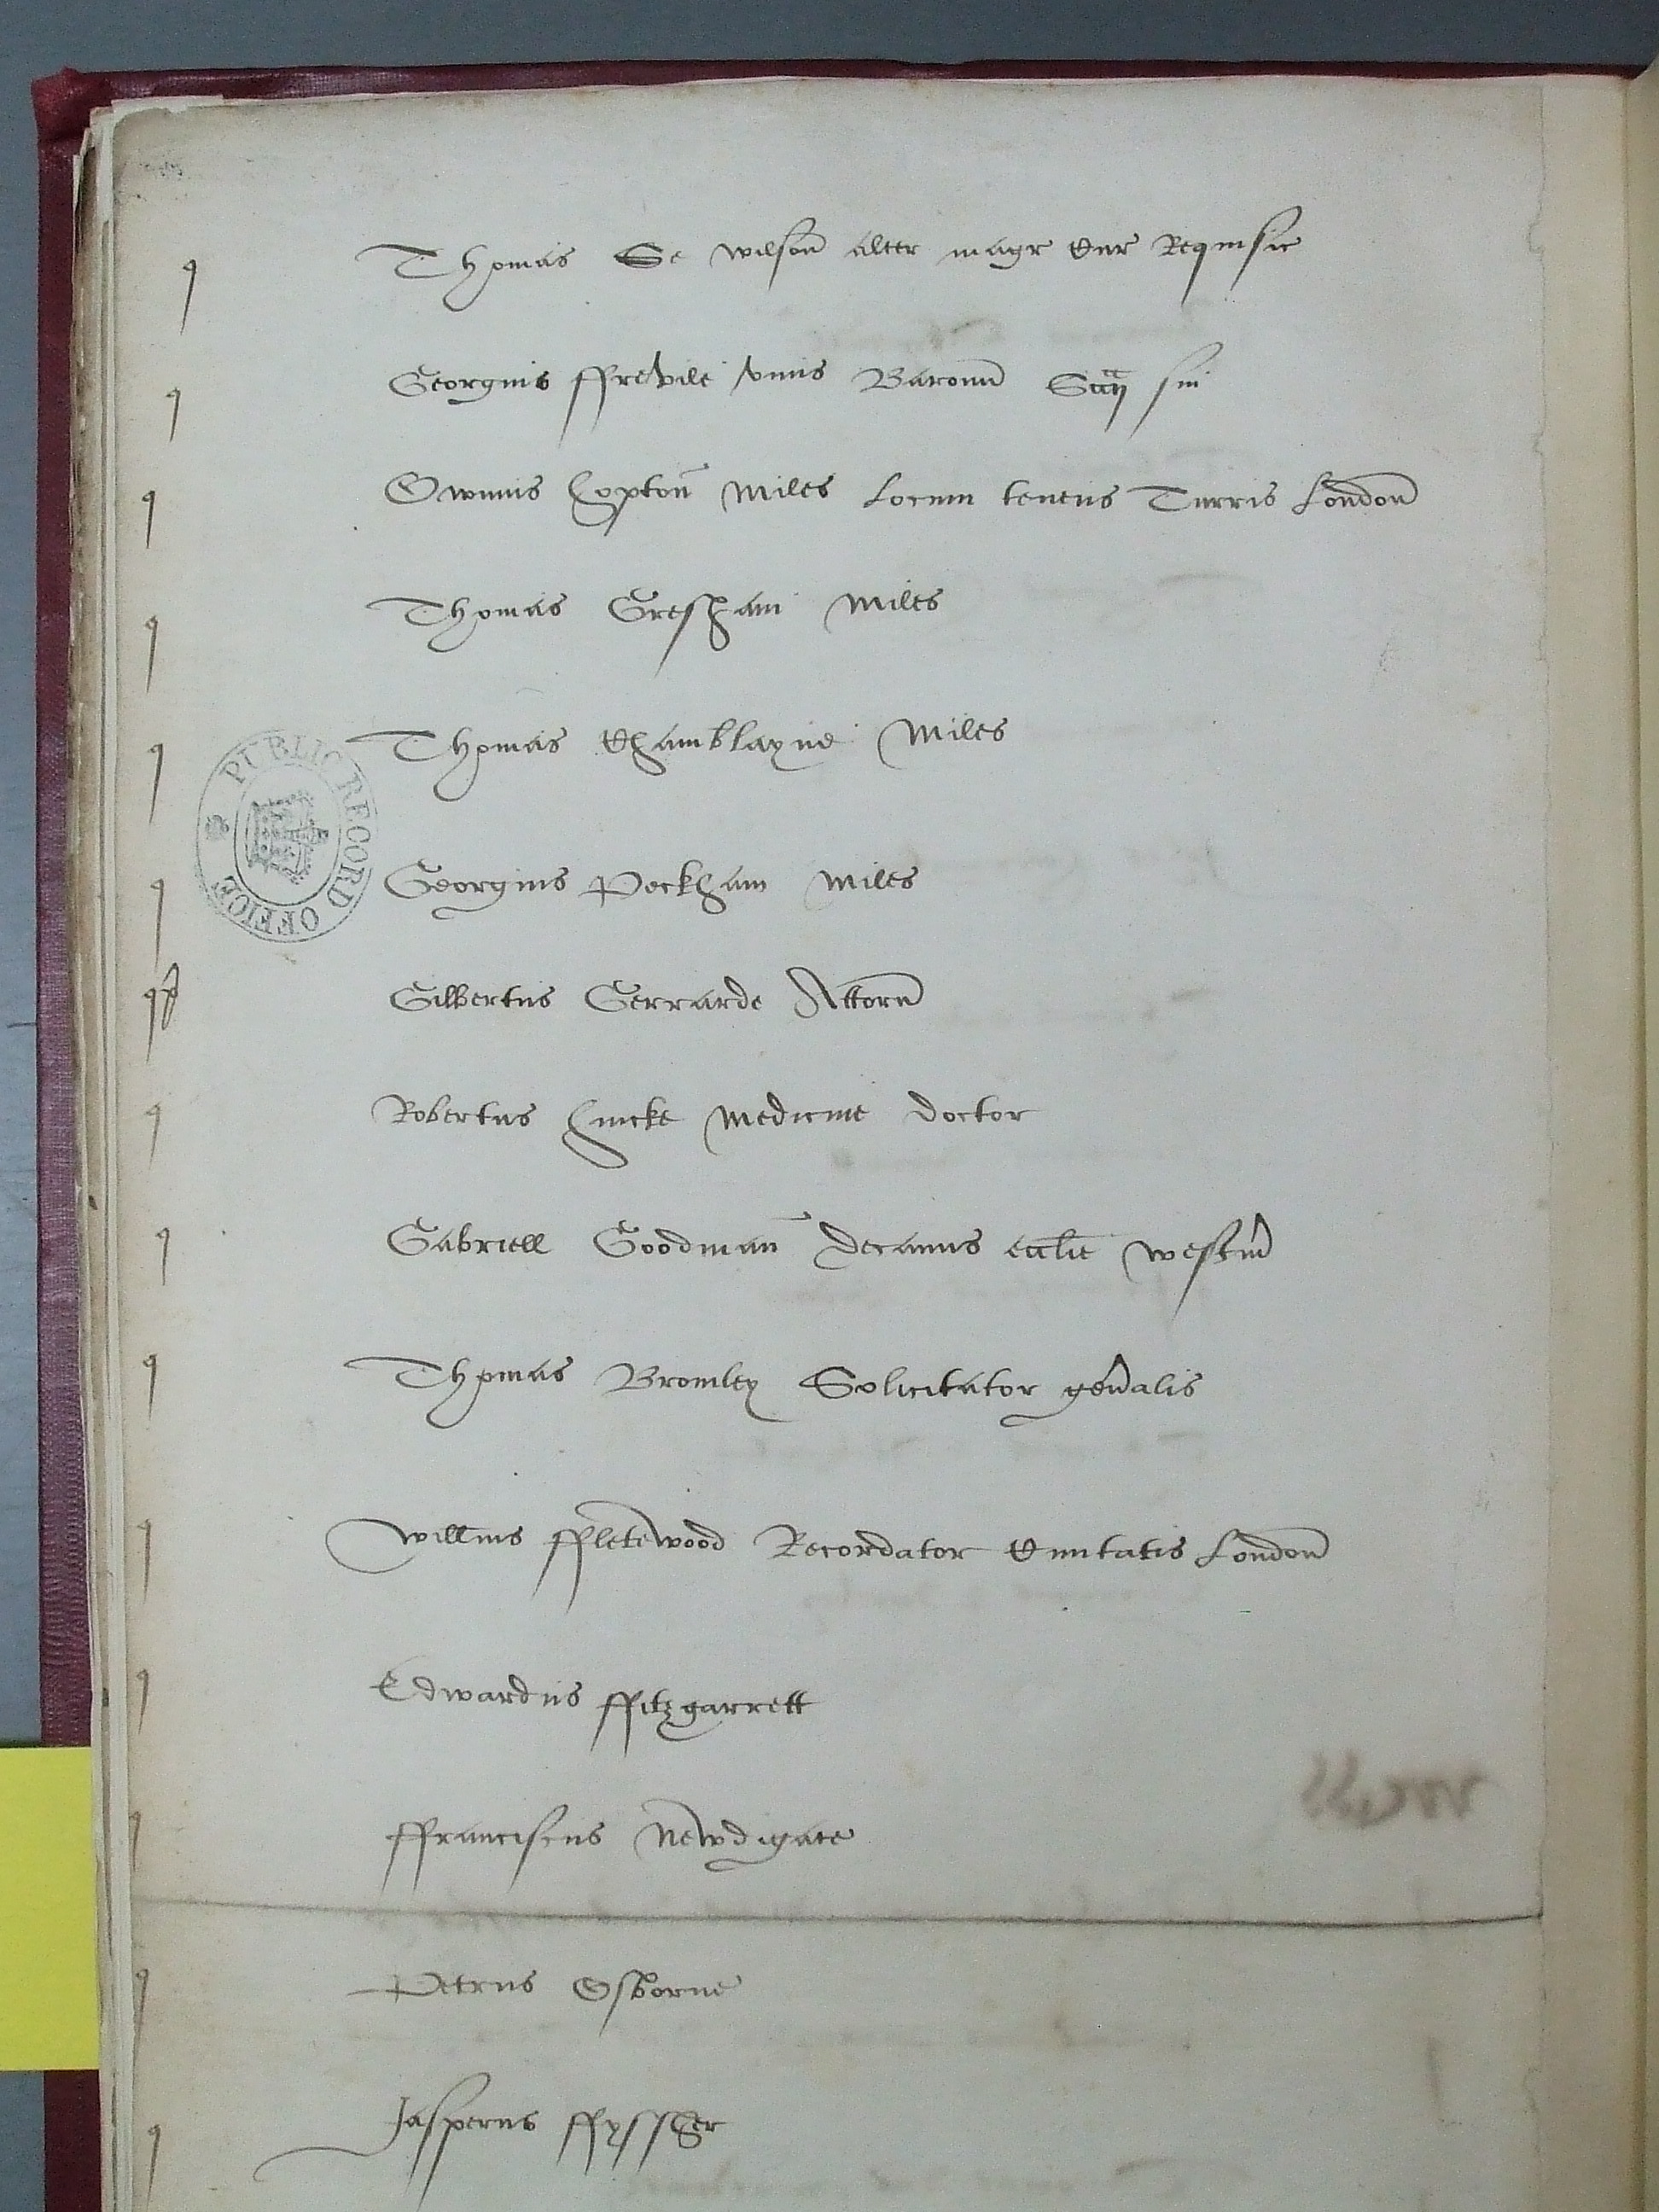 Thomas Se wilson alter magr Cur Requisic
Georgius ffrevile vnus Baronu Scacij sui
Owinus Hopton Miles Locum tenens Turris London
Thomas Gresham Miles
Thomas Chamblayne Miles
PUBLIC RECORD OFFICE
Georgius Peckham Miles
Gilbertus Gerrarde Attorn
Robertus Huicke Medicine doctor
Gabriell Goodman Decanus ecclie westm
Thomas Bromley Solicitator genalis
Willms ffletewood Recordator Civitatis London
Edwardus ffitzgarrett
ffranciscus Newdigate
Petrus Osborne
Jasperus ffyssher